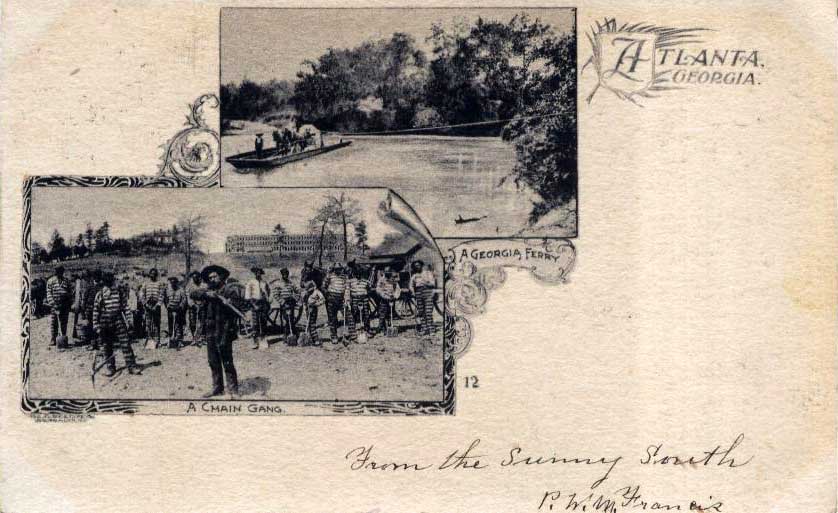 ATLANTA,
GEORGIA.
A GEORGIA FERRY
12
A CHAIN GANG.
From the Sunny South
P. W. M. Francis